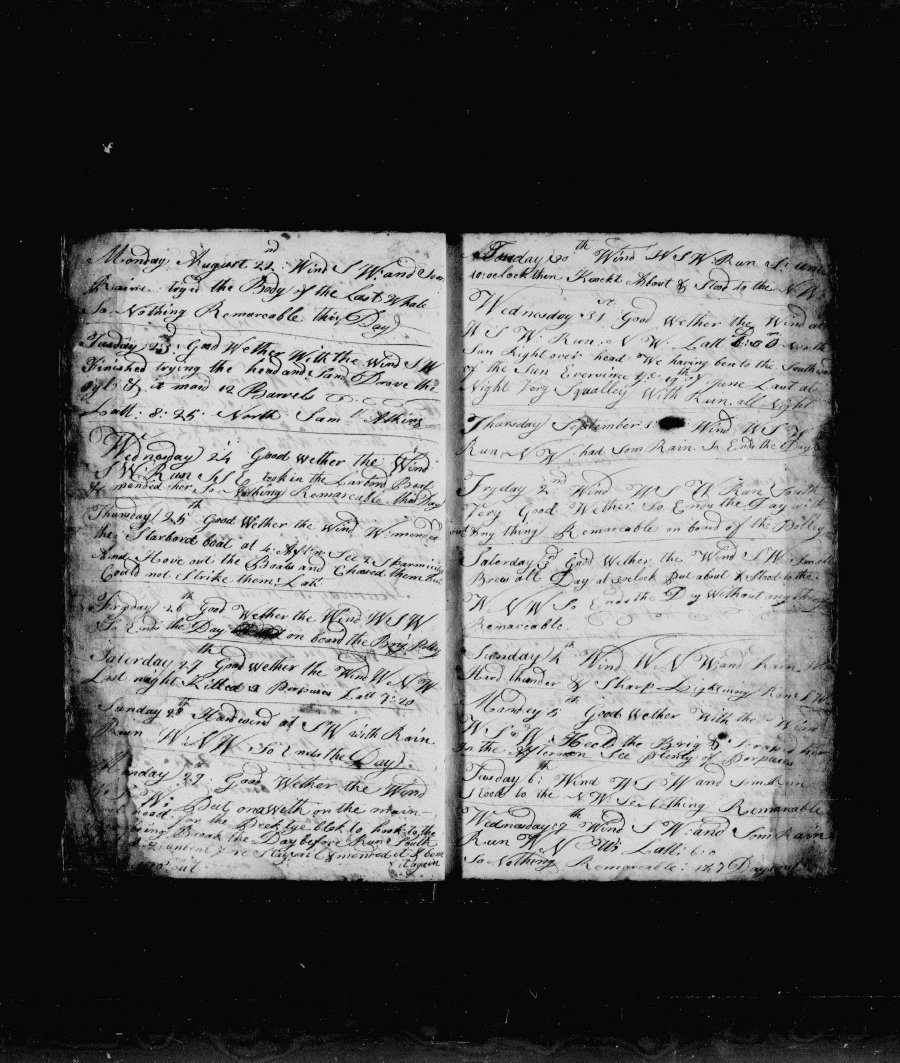 Monday August 22nd Wind S W: and Som
Raine tryed the Body of the Last Whale
So Nothing Remareable this Day
Tusday 23: Good Wether With the Wind S W
Finished trying the head and Sam Drove the
oyl & it maid 12 Barrels
Latt: 8: 25: North Saml Atkins
Wednesday 24 Good wether the Wind
S W: Run took in the Larbord Boat
& mended her So Nothing Remareable this Day
Thursday 25th Good Wether the Wind W: mended
the Starbord boat at 4: Aftin See 2 Sparmicity
And Hove out the Boats and Chased them but
Could not Strike them: Latt
Fryday 26th Good Wether the Wind W S W
So Ends the Day on board the Brig Polley
Saterday 27th Good Wether the Wind W N W
Last night Killed 2 Porpuses Latt 7:10
Sunday 28th Hard wind at S W with Rain
Run W N W So Ends the Day
Monday 29: Good Wether the Wind
W: Put on the main
for the blok to hook to the
Broak the Day before Run South
mended it & bent
it again
Tusday 30th Wind W S W: Run S: until
10: oclock then Knockt About & Stod to the N W
Wednesday 31st Good Wether the Wind at
W S W: Run N W: Latt 6:00 North
Sun Right over head We having ben to the Southward
of the Sun Ever since ye 17th of June Last at
Night Very Squalley With Rain all Night
Thursday September 1 Wind W S W
Run N W had Som Rain So Ends the Day
Fryday 2nd Wind W S W Run South
Very Good Wether So Ends the Day with
out Any thing Remareable on board of the Polley
Saterday 3 Good Wether the Wind S W Small
Brew all Day at oclock Put about & Stod to the
W N W So Ends the Day Without any thing
Remareable
Sunday 4th Wind W N W and Rain
Hard thunder & Sharp Lightning Ran S W
Monday 5th Good Wether With the Wind
W S W: Heeld the Brig & Scraped her
In the Afternon See plenty of Porpuses
Tusday 6th: Wind W S W and Som Rain
Stood to the N W So Nothing Remareable
Wednesday 7th Wind S W: and Som Rain
Run W N W: Latt: 6:0
So Nothing Remareable: 127 Days